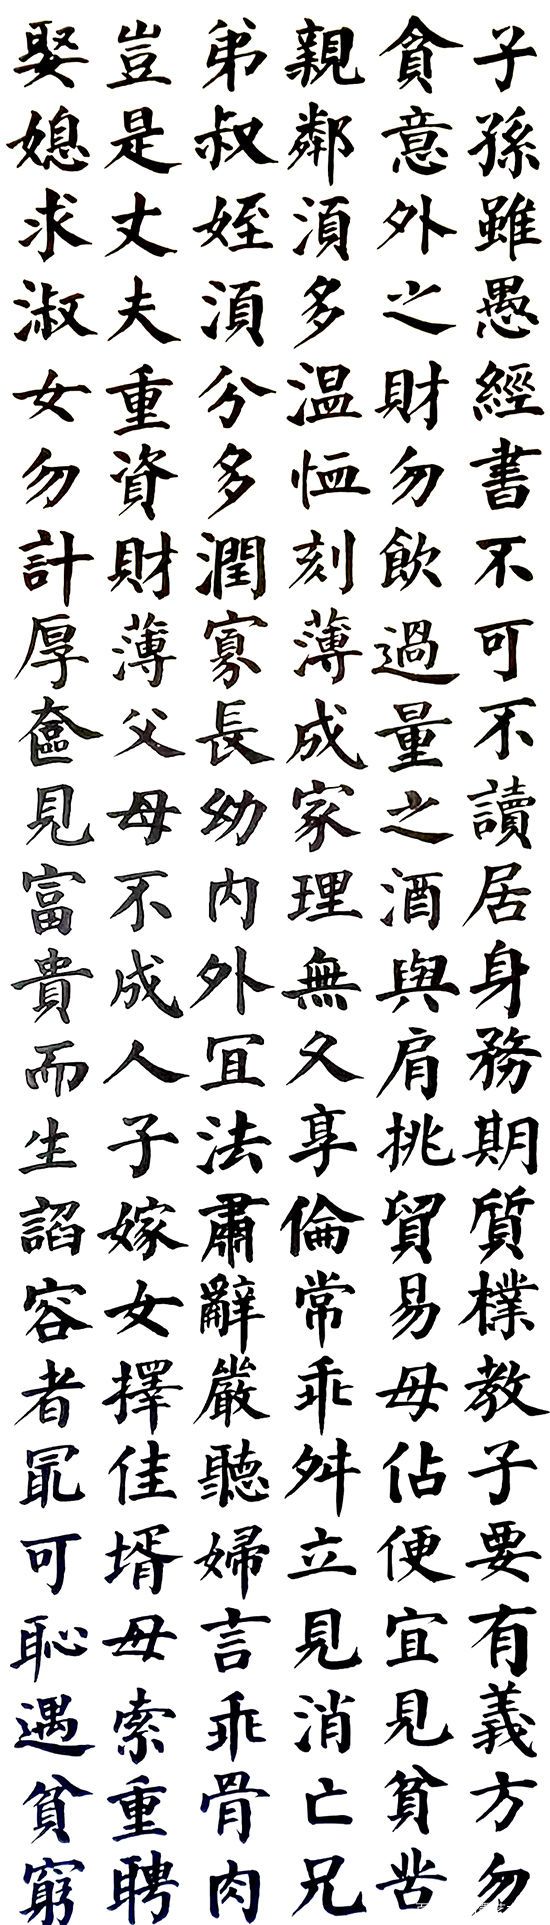 子孫雖愚經書不可不讀居身務期質樸教子要有義方勿
貪意外之財勿飲過量之酒與肩挑貿易毋佔便宜見貧苦
親鄰須多温恤刻薄成家理無久享倫常乖舛立見消亡兄
弟叔姪須分多潤寡長幼内外宜法肅辭嚴聽婦言乖骨肉
豈是丈夫重資財薄父母不成人子嫁女擇佳壻毋索重聘
娶媳求淑女勿計厚奩見富貴而生諂容者冣可恥遇貧窮